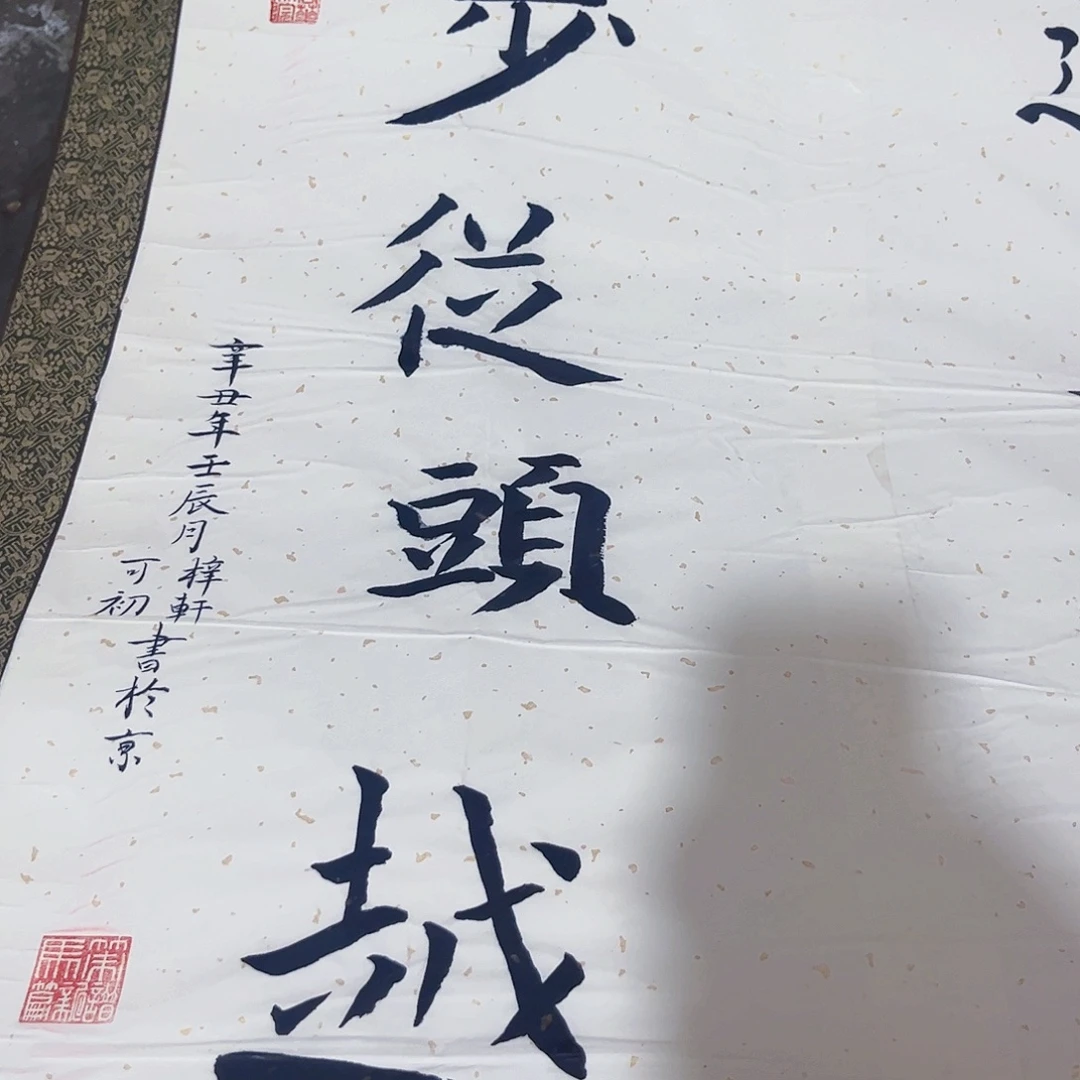 步從頭越
辛丑年壬辰月梓軒
可初書於京